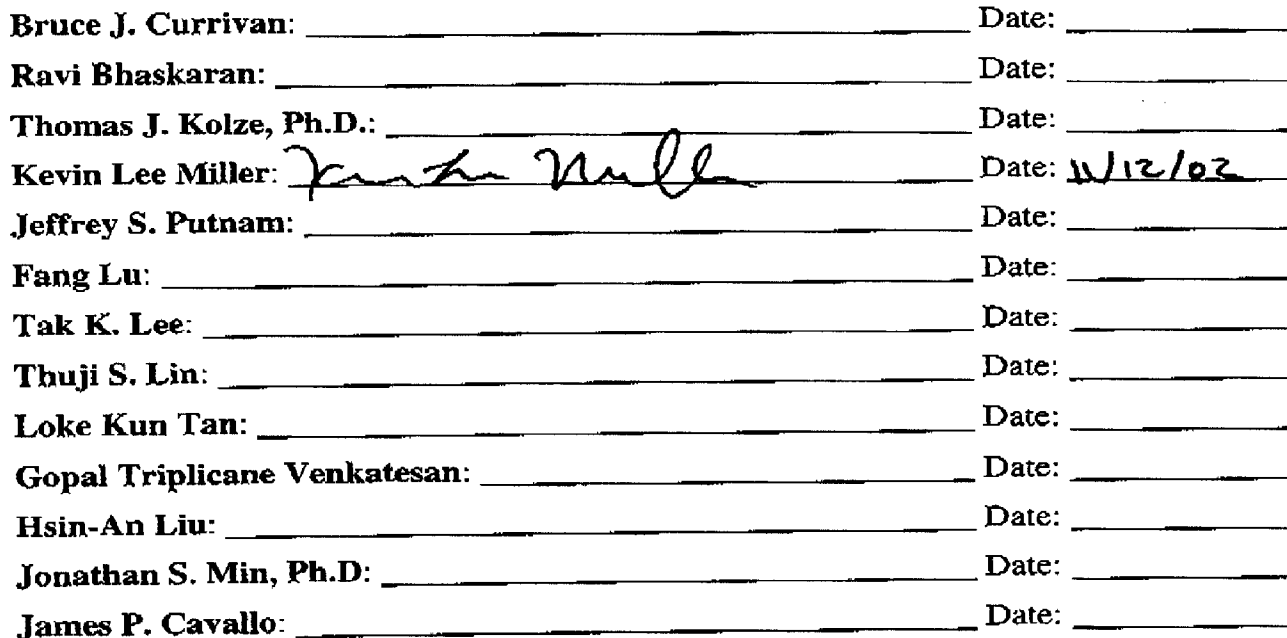 Bruce J. Currivan: Date:
Ravi Bhaskaran: Date:
Thomas J. Kolze, Ph.D.: Date:
Kevin Lee Miller: Kevin Lee Miller Date: 11/12/02
Jeffrey S. Putnam: Date:
Fang Lu: Date:
Tak K. Lee: Date:
Thuji S. Lin: Date:
Loke Kun Tan: Date:
Gopal Triplicane Venkatesan: Date:
Hsin-An Liu: Date:
Jonathan S. Min, Ph.D: Date:
James P. Cavallo: Date: